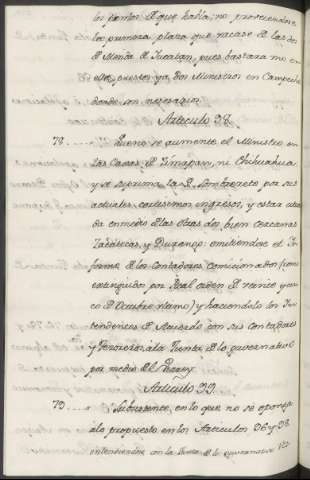 los demas de que habia; no proveiendose
la primera plaza que vacase de las dos
de Merida de Yucatan, pues bastara no en
ella, puesto ya dos Ministros en Campeche
donde son necesarios.
Articulo 98.
72..... Que no se aumente el Ministro en
las Caxas de Zimapan, ni Chihuahua,
y se suprima la de Sombrerete por sus
actuales cortissimos ingresos, y estar situada
en medio de las otras dos bien cercanas
Zacatecas, y Durango: omitiendose el In
forme de los Contadores Comicionados (ia
extinguidos por Real orden de
de Octubre ultimo) y haciendolo los In
tendentes de Acuerdo con sus Contadores
y Tesoreros, a la Junta de lo gubernativo
por medio del Virrey.
Articulo 99.
73..... Subsistente, en lo que no se oponga
a lo propuesto en los Articulos 96 y 98
entendiendose con la Junta de lo Gubernativo